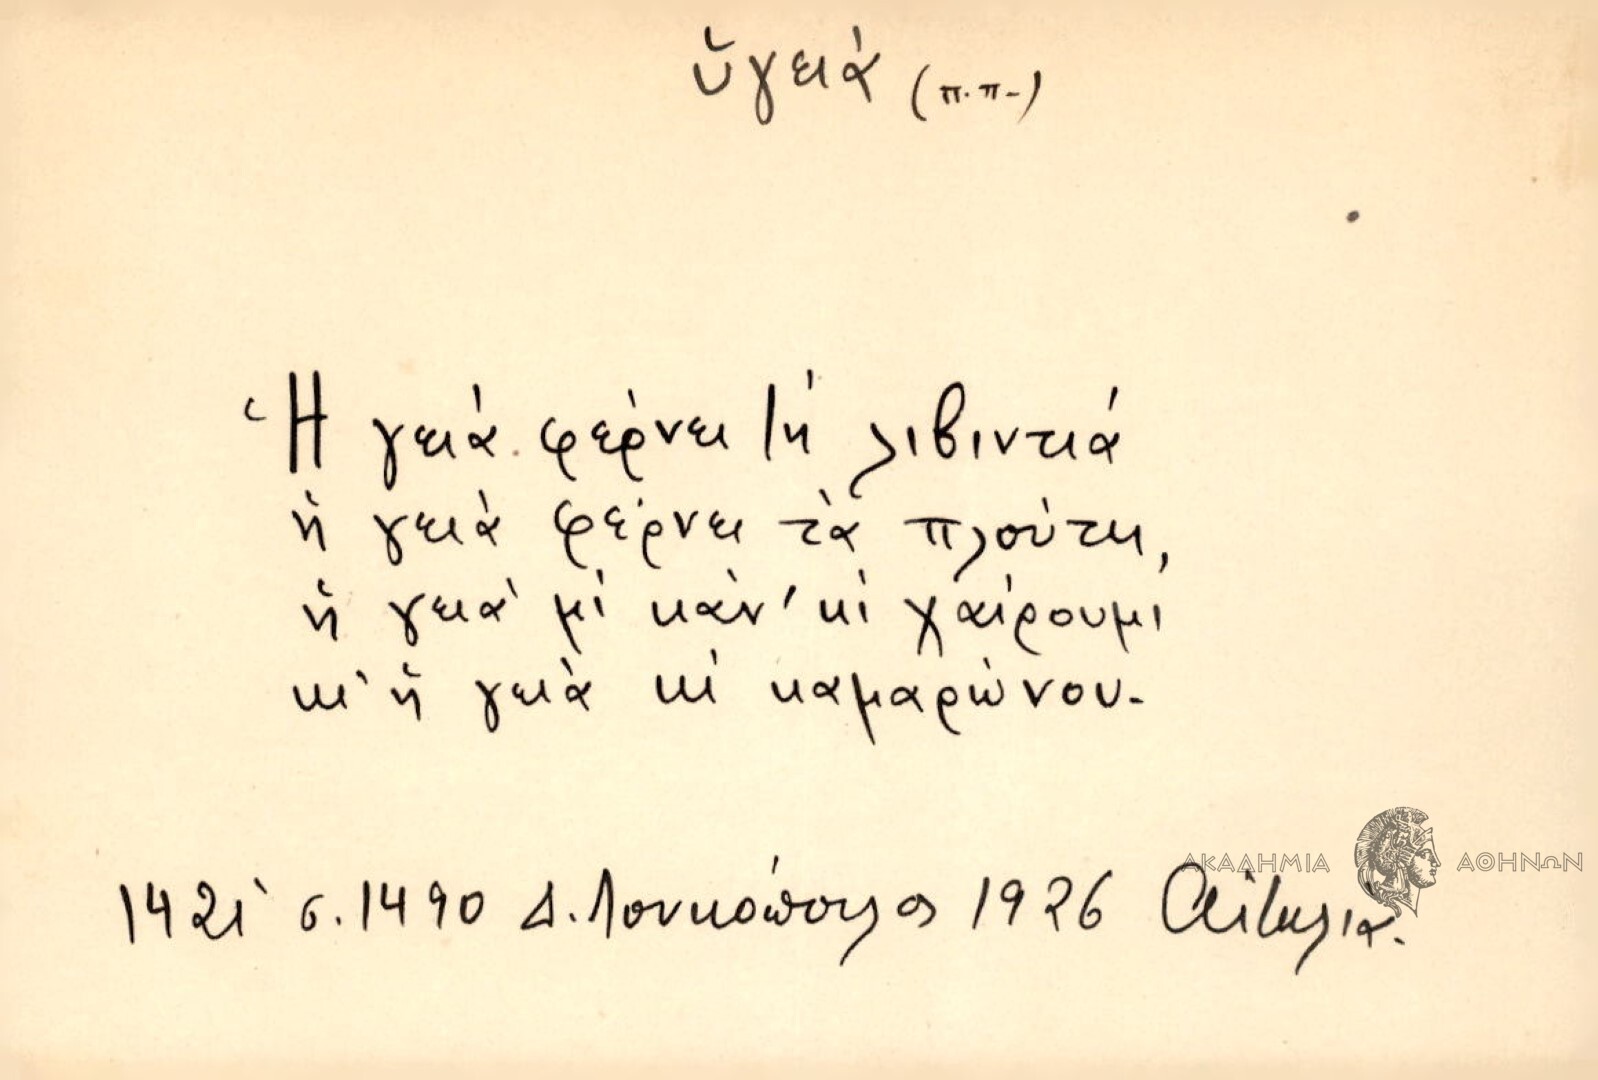 ὑγειά (π.π.)
Ἡ γειά φέρνει /ἡ λιβιντιά
ἡ γειά φέρνει τὰ πλούτη,
ἡ γειά μὶ κάν' κὶ χαίρουμι
κι' ἡ γειὰ κὶ καμαρώνου.
1421 σ. 1490 Δ. Λουκόπουλος 1926 Αἰτωλία.
ΑΚΑΔΗΜΙΑ ΑΘΗΝΩΝ